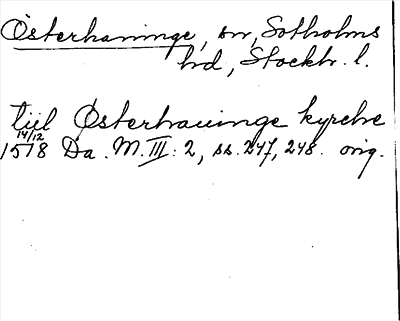 Österhaninge, sn, Sotholms
hd, Stockh. l.
till Østerhauinge kyrche
14/12
1518 Da. M. III: 2, ss. 247, 248. orig.